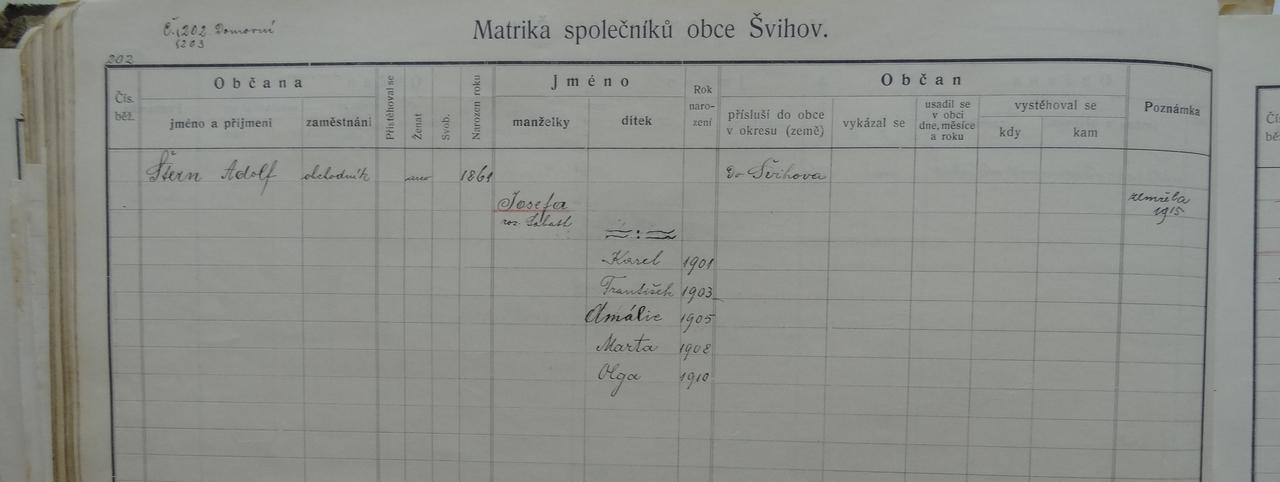 Č. 202 Domovní
203
Matrika společníků obce Švihov.
202
Občana
Jméno
Občan
Čís. běž.
jméno a příjmení
zaměstnání
Přistěhoval se
Ženat
Svob.
Narozen roku
manželky
dítek
Rok naro- zení
přísluší do obce v okresu (země)
vykázal se
usadil se v obci dne, měsíce a roku
vystěhoval se
kdy
kam
Poznámka
Štern Adolf obchodník ano 1861 do Švihova
Josefa zemřela
roz. 1915
Karel 1901
František 1903
Amálie 1905
Marta 1908
Olga 1910
Čí
běž.